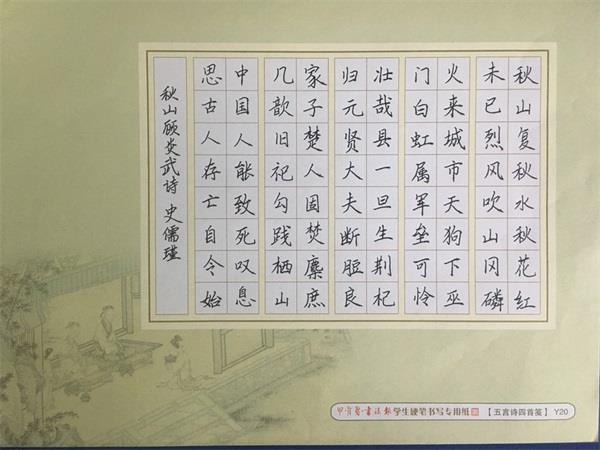 秋山复秋水秋花红
未已烈风吹山冈磷
火来城市天狗下巫
门白虹属军垒可怜
壮哉县一旦生荆杞
归元贤大夫断脰良
家子楚人固焚麇庶
几歆旧祀勾践栖山
中国人能致死叹息
思古人存亡自令始
秋山顾炎武诗 史儒瑾
书法报 学生硬笔书写专用纸 【五言诗四首笺】 Y20